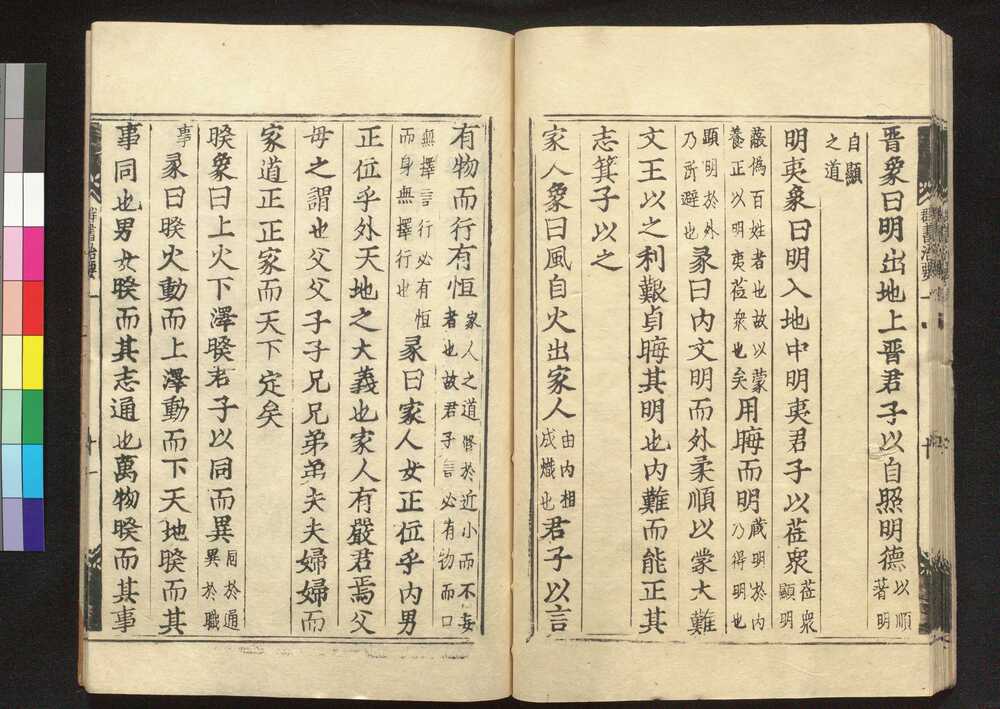 群書治要一　十
晋象曰明出地上晋君子以自照明德以順著明
自顯之道
明夷象曰明入地中明夷君子以莅衆莅衆顯明
蔽偽百姓者也故以蒙養正以明夷莅衆也矣用晦而明藏明於内乃得明也
顯明於外乃所避也彖曰内文明而外柔順以蒙大難
文王以之利艱貞晦其明也内難而能正其
志箕子以之
家人象曰風自火出家人由内相成熾也君子以言
有物而行有恒家人之道脩於近小而不妄者也故君子言必有物而口
無擇言行必有恒而身無擇行也彖曰家人女正位乎内男
正位乎外天地之大義也家人有嚴君焉父
母之謂也父父子子兄兄弟弟夫夫婦婦而
家道正正家而天下定矣
睽象曰上火下澤睽君子以同而異同於通異於職
事彖曰睽火動而上澤動而下天地睽而其
事同也男女睽而其志通也萬物睽而其事
群書治要一　十一